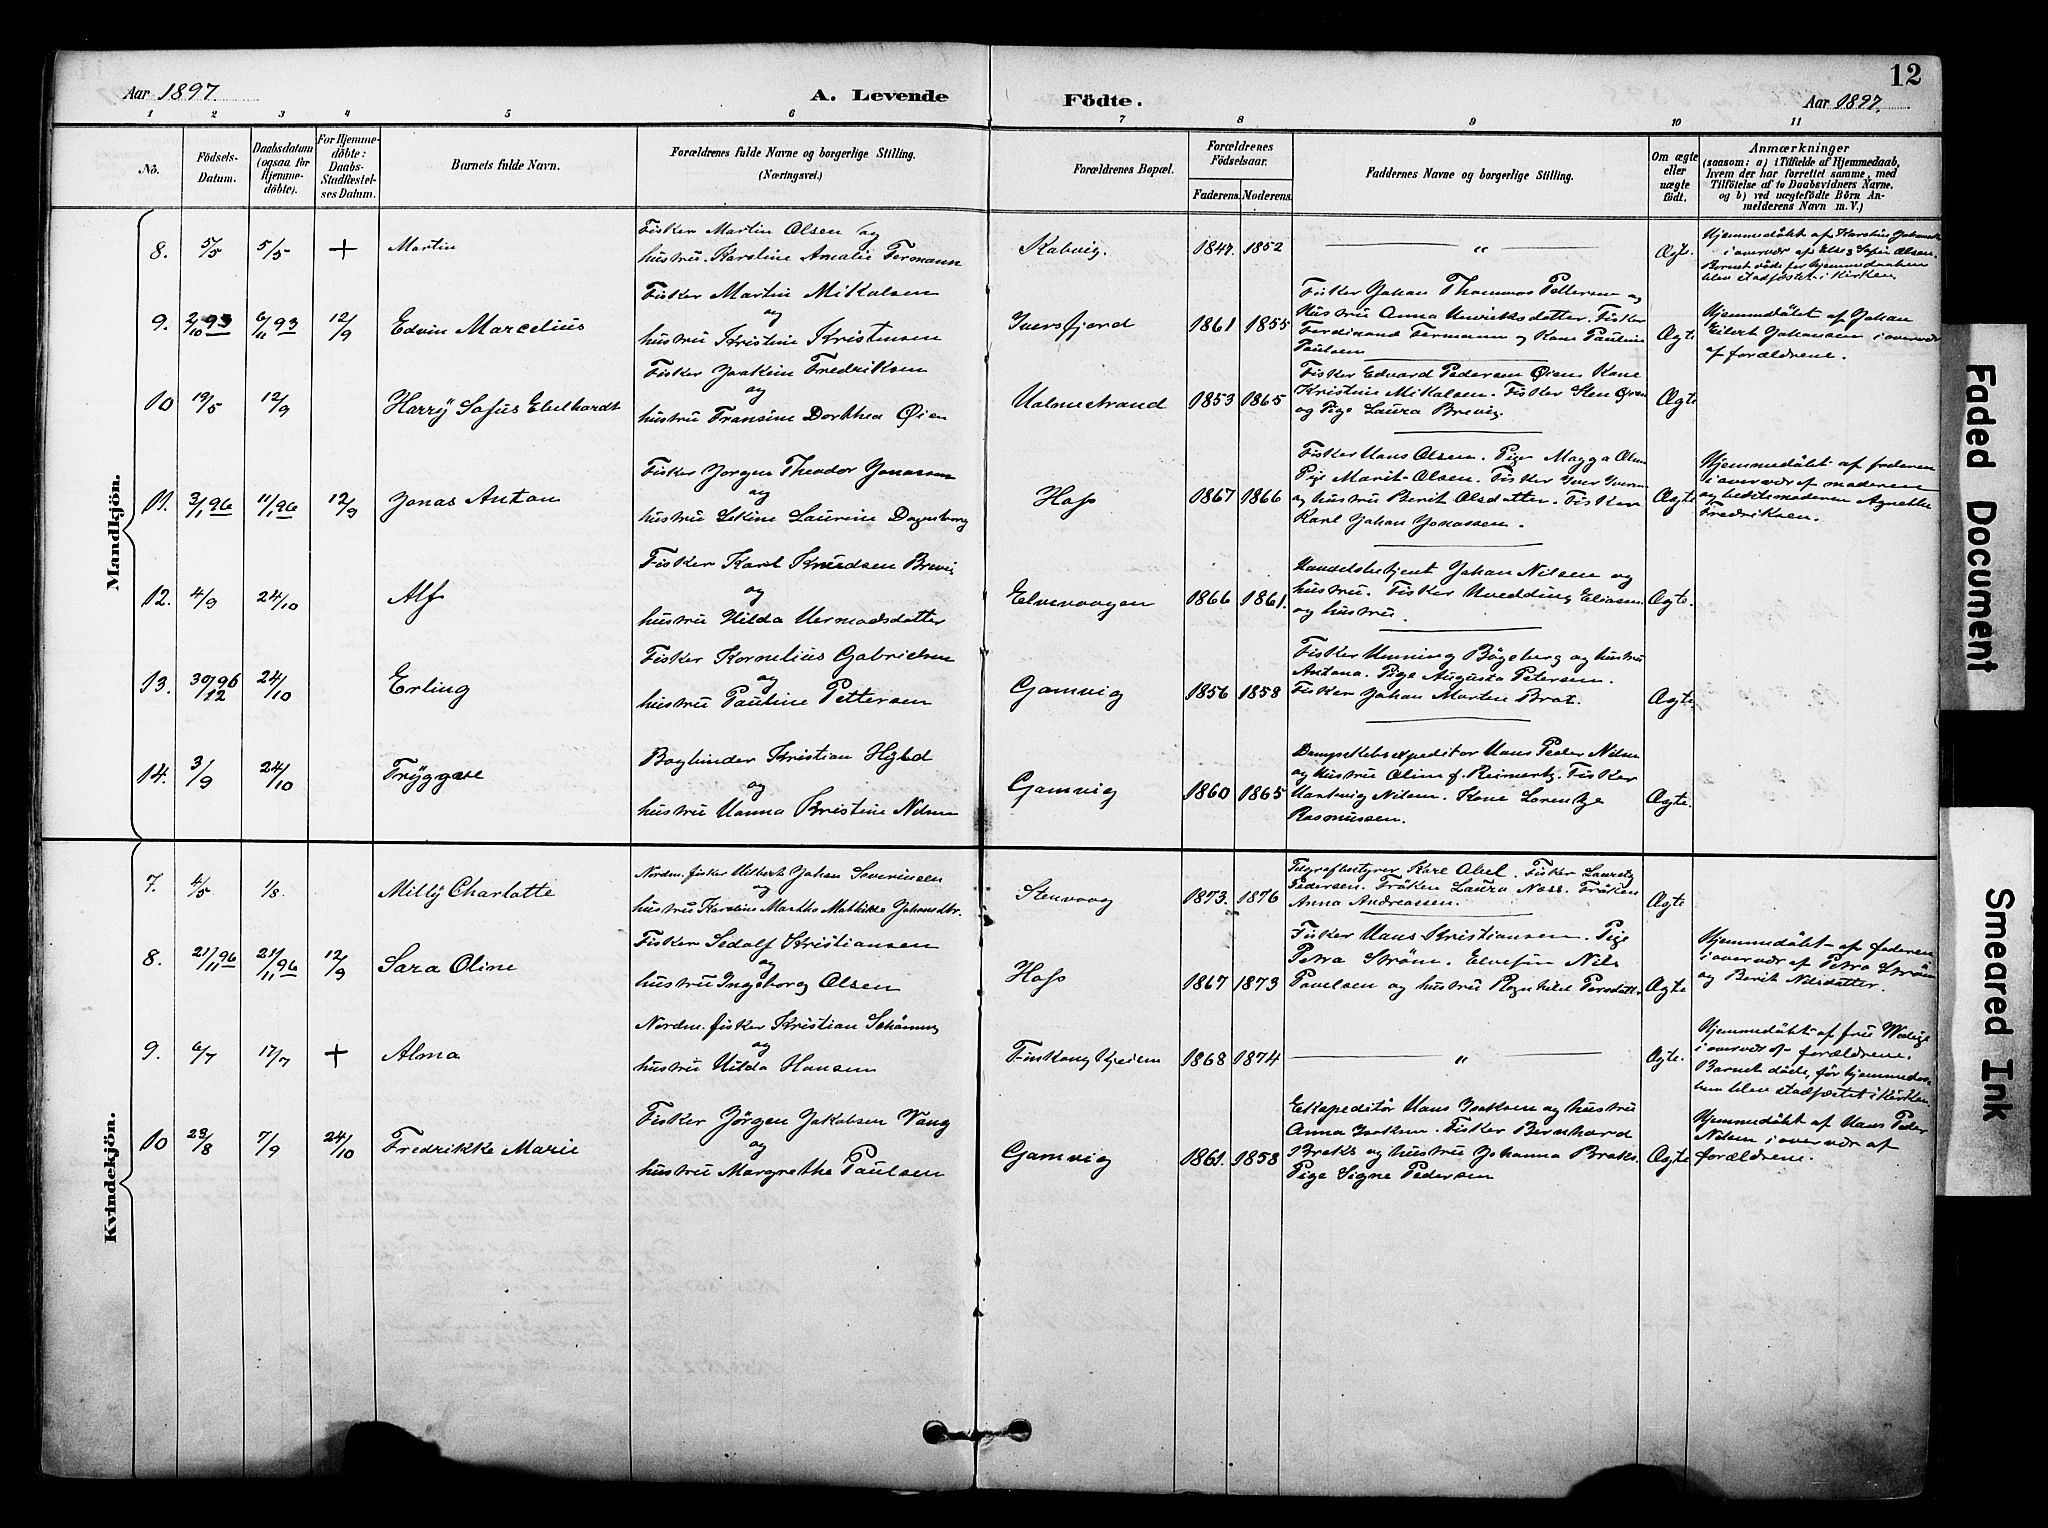 12
Aar 1897.
A. Levende
Födte.
Aar 1897.
1 2 3 4 5 6 7 8 9 10 11
No.
Födsels-
Datum.
Daabsdatum
(ogsaa for
Hjemme-
döbte).
For Hjemme-
döbte:
Daabs-
Stadfæstel-
ses Datum.
Barnets fulde Navn.
Forældrenes fulde Navne og borgerlige Stilling.
(Næringsvei.)
Forældrenes Bopæl.
Forældrenes
Födselsaar.
Faderens. Moderens.
Faddernes Navne og borgerlige Stilling.
Om ægte
eller
uægte
födt.
Anmærkninger
(saasom: a) i Tilfælde af Hjemmedaab,
hvem der har forrettet samme, med
Tilföielse af to Daabsvidners Navne,
og b) ved uægtefödte Börn An-
melderens Navn m. V.)
Mandkjön.
8. 5/5 5/5 + Martin
Fisker Martin Olsen og
hustru Karoline Amalie Fermann
Kalvig. 1847. 1852 " Ægte.
i overvær af Else og Sofie Olsen.
Barnet døde før hjemmedaaben
blev stadfæstet i Kirken
9. 2/10 93 6/11 93 12/9 Edvin Marcelius
Fisker Martin Mikalsen
og
hustru Kristine Kristensen
Iversfjord 1861 1855
Fisker Johan Thommas Pettersen og
Hustru Anna Henriksdatter. Fisker
Ferdinand Fermann og Kone Pauline
Paulsen
Ægte
Hjemmedøbt af Johan
Eilert Johansen i overvær
af forældrene.
10 19/5 12/9 Harry Sofus Eberhardt
Fisker Joakim Fredriksen
og
hustru Fransine Dorthea Øien
Halmestrand 1853 1865
Fisker Edvard Pedersen Øien Kone
Kristine Mikalsen. Fisker Sten Øien
og Pige Laura Brevig.
Ægte
11. 3/1 96 11/1 96 12/9 Jonas Anton
Fisker Jørgen Theodor Jonassen
og
hustru Eskine Laurine Dagensborg
Hofs 1867 1866
Fisker Hans Olsen. Pige Magga Olsen
Pige Marit Olsen. Fisker Iver Iversen
og hustru Berit Olsdatter. Fisker
Karl Johan Jonassen.
Ægte
Hjemmedøbt af faderen
i overvær af moderen
og bedstemoderen Agnethe
Fredriksen.
12. 4/9 24/10 Alf
Fisker Karl Knudsen Brevig
og
hustru Hilda Hermodsdatter
Elvevaagen 1866 1861.
Handelsbetjent Johan Nilsen og
hustru. Fisker Hvedding Eliassen
og hustru.
Ægte.
13. 30/12 96 24/10 Erling
Fisker Kornelius Gabrielsen
og
hustru Pauline Pettersen
Gamvig 1856 1858
Fisker Henning Bøgeberg og hustru
Antona. Pige Augusta Petersen.
Fisker Johan Marten Brat.
Ægte.
14. 3/9 24/10 Tryggve
Bogbinder Kristian Hyld
og
hustru Hanna Kristine Nilsen
Gamvig 1860 1865
Dampskibsexpeditor Hans Peder Nilsen
og hustru Oline f. Reimertz. Fisker
Hartvig Nilsen. Kone Lorentze
Rasmussen.
Ægte.
Kvindekjön.
7. 4/5 1/8 Milly Charlotte
Nordm. fisker Hilbert Johan Severinsen
og
hustru Karoline Martha Mathilde Johansdtr.
Stenvaag 1873. 1876
Telegrafbestyrer Kare Abel. Fisker Lauritz
Pedersen. Frøken Laura Noss. Frøken
Anna Andreassen.
Ægte
8. 21/11 96 21/11 96 12/9 Sara Oline
Fisker Sedolf Kristiansen
og
hustru Ingeborg Olsen
Hofs 1867 1873
Fisker Hans Kristiansen. Pige
Petra Strøm. Elvefin Nils
Pavelsen og hustru Ragnhild Persdatter
Ægte
Hjemmedøbt af faderen
i overvær af Petra Strøm
og Berit Nilsdatter.
9. 6/7 17/7 + Alma
Nordm. fisker Kristian Schønning
og
hustru Hilda Hansen
Finkongkjeilen 1868 1874 " Ægte.
i overvær af forældrene.
Barnet døde, før hjemmedaa-
ben blev stadfæstet i Kirken.
10 23/8 7/9 24/10 Fredrikke Marie
Fisker Jørgen Jakobsen Vang
og
hustru Margrethe Paulsen
Gamvig 1861. 1858
Ekspeditør Hans Isaksen og hustru
Anna Isaksen. Fisker Bernhard
Braks og hustru Johanna Braks.
Pige Signe Pedersen
Ægte
Hjemmedøbt af Hans Peder
Nilsen i overvær af
forældrene.
Faded Document
Smeared Ink